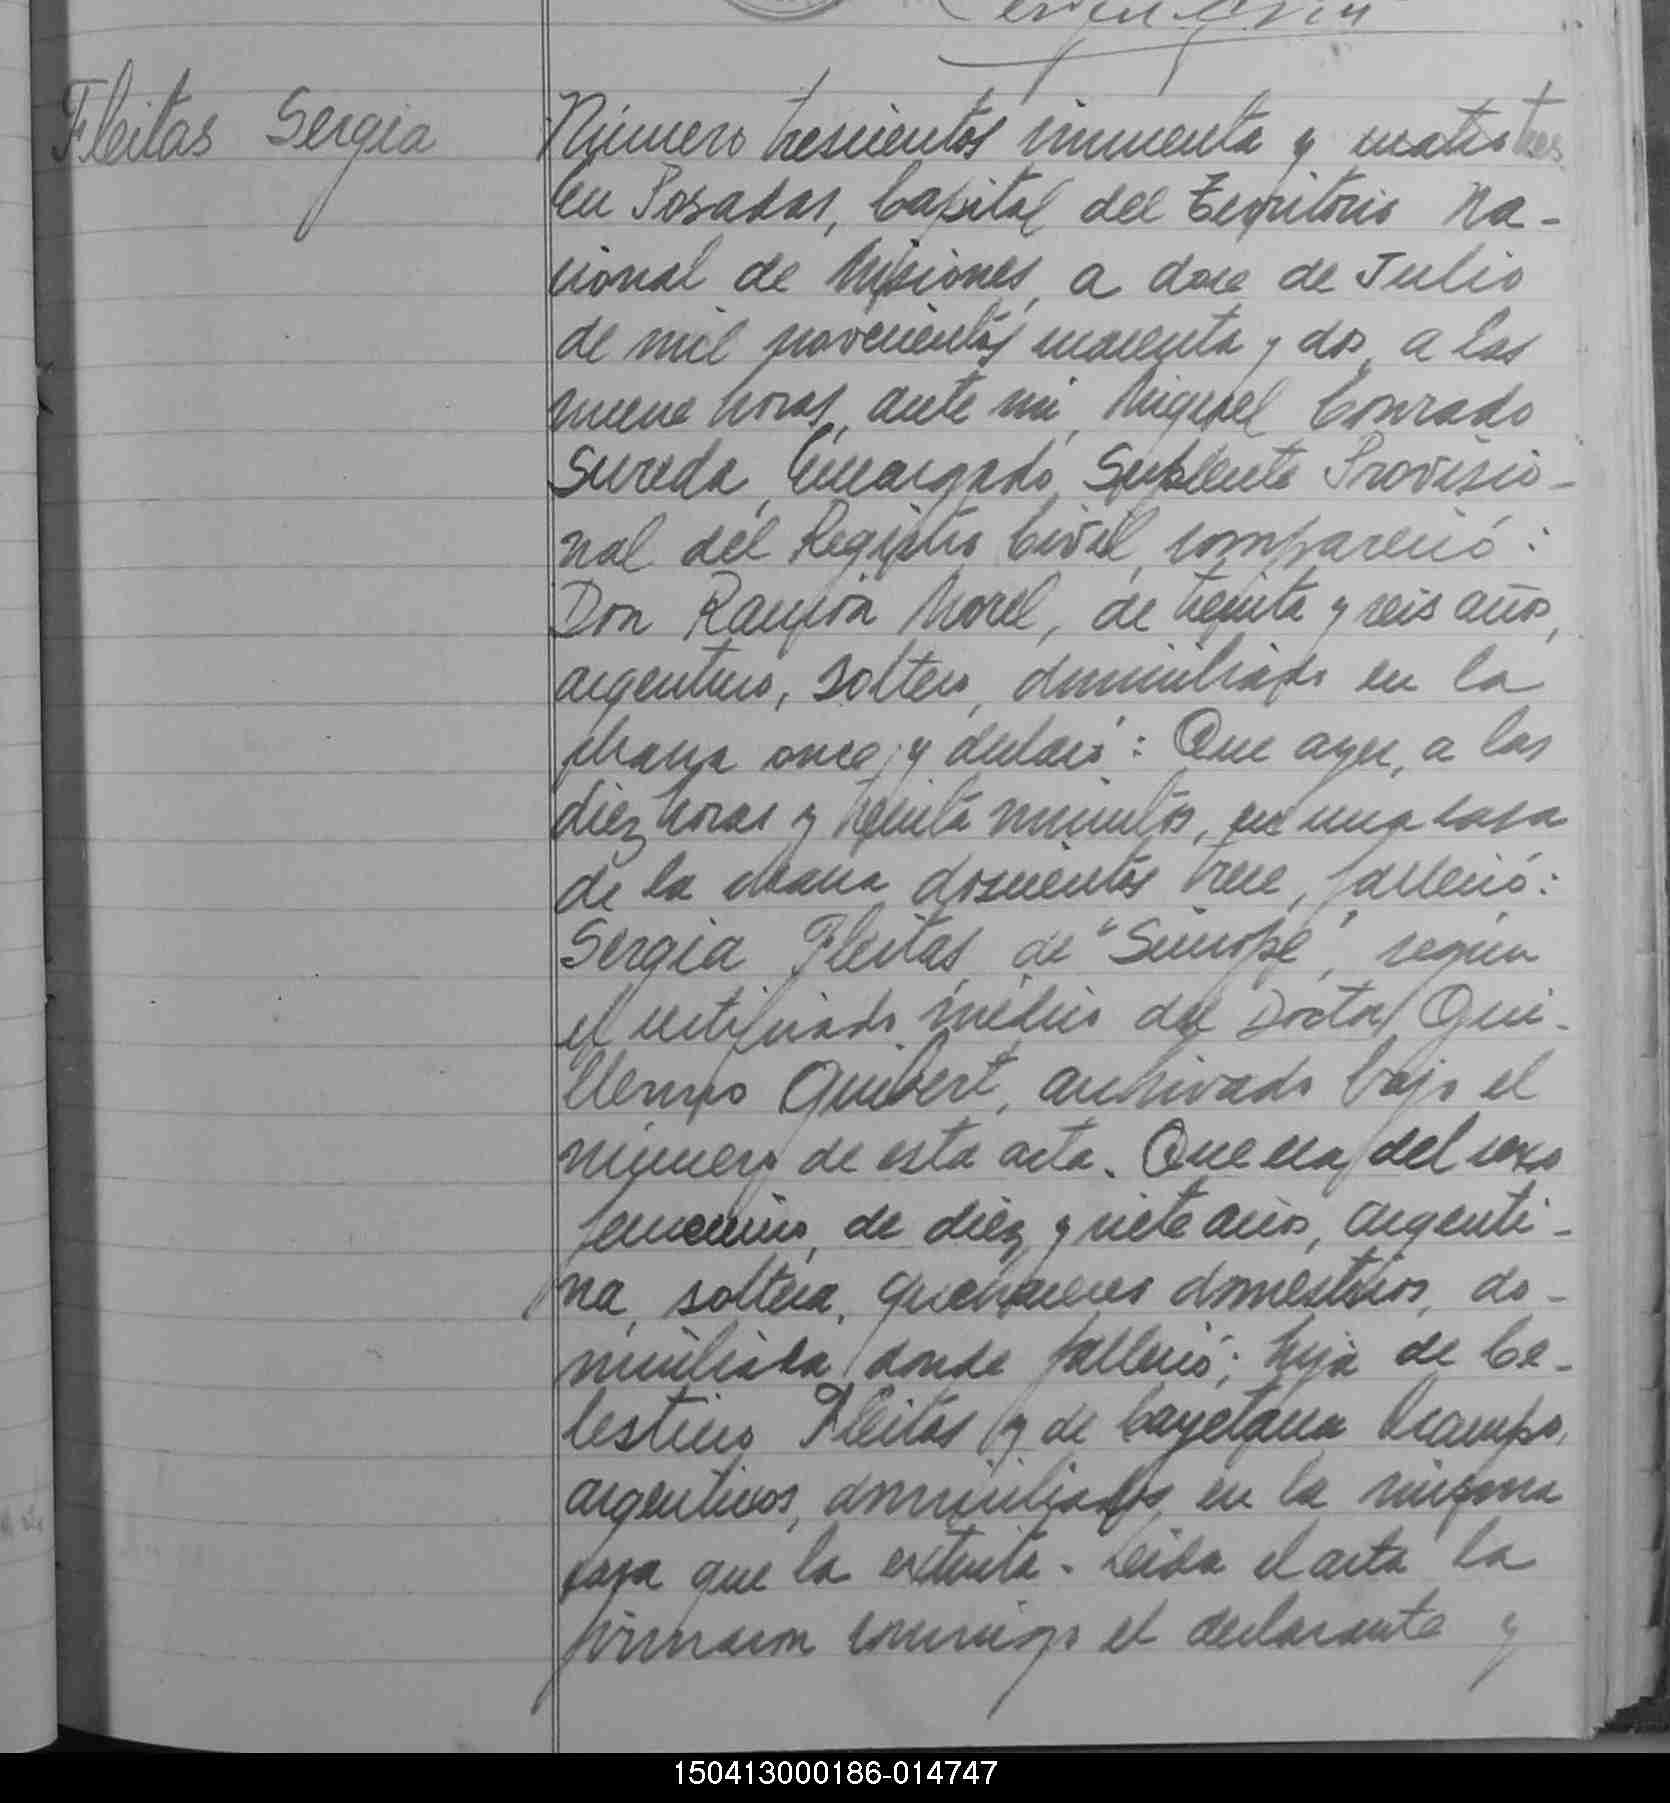 Fleitas Sergia
Número trescientos cincuenta y cuatro tres
En Posadas, Capital del Territorio Na-
cional de Misiones, a doce de Julio
de mil novecientos cuarenta y dos, a las
nueve horas, ante mi, Miguel Conrado
Sureda, Encargado Suplente Provisio-
nal del Registro Civil, compareció:
Don Ramón Morel, de treinta y seis años,
argentino, soltero, domiciliado en la
chacra once, y declaró: Que ayer, a las
diez horas y treinta minutos, en una casa
de la chacra doscientos trece, falleció:
Sergia Fleitas, de "Síncope", según
el certificado médico del Doctor Gui-
llermo Guibert, archivado bajo el
número de esta acta. Que era del sexo
femenino, de diez y siete años, argenti-
na, soltera, quehaceres domésticos, do-
miciliada donde falleció; hija de Ce-
lestino Fleitas y de Cayetana Ocampo,
argentinos, domiciliados en la misma
casa que la extinta. Leida el acta la
firmaron conmigo el declarante y
150413000186-014747